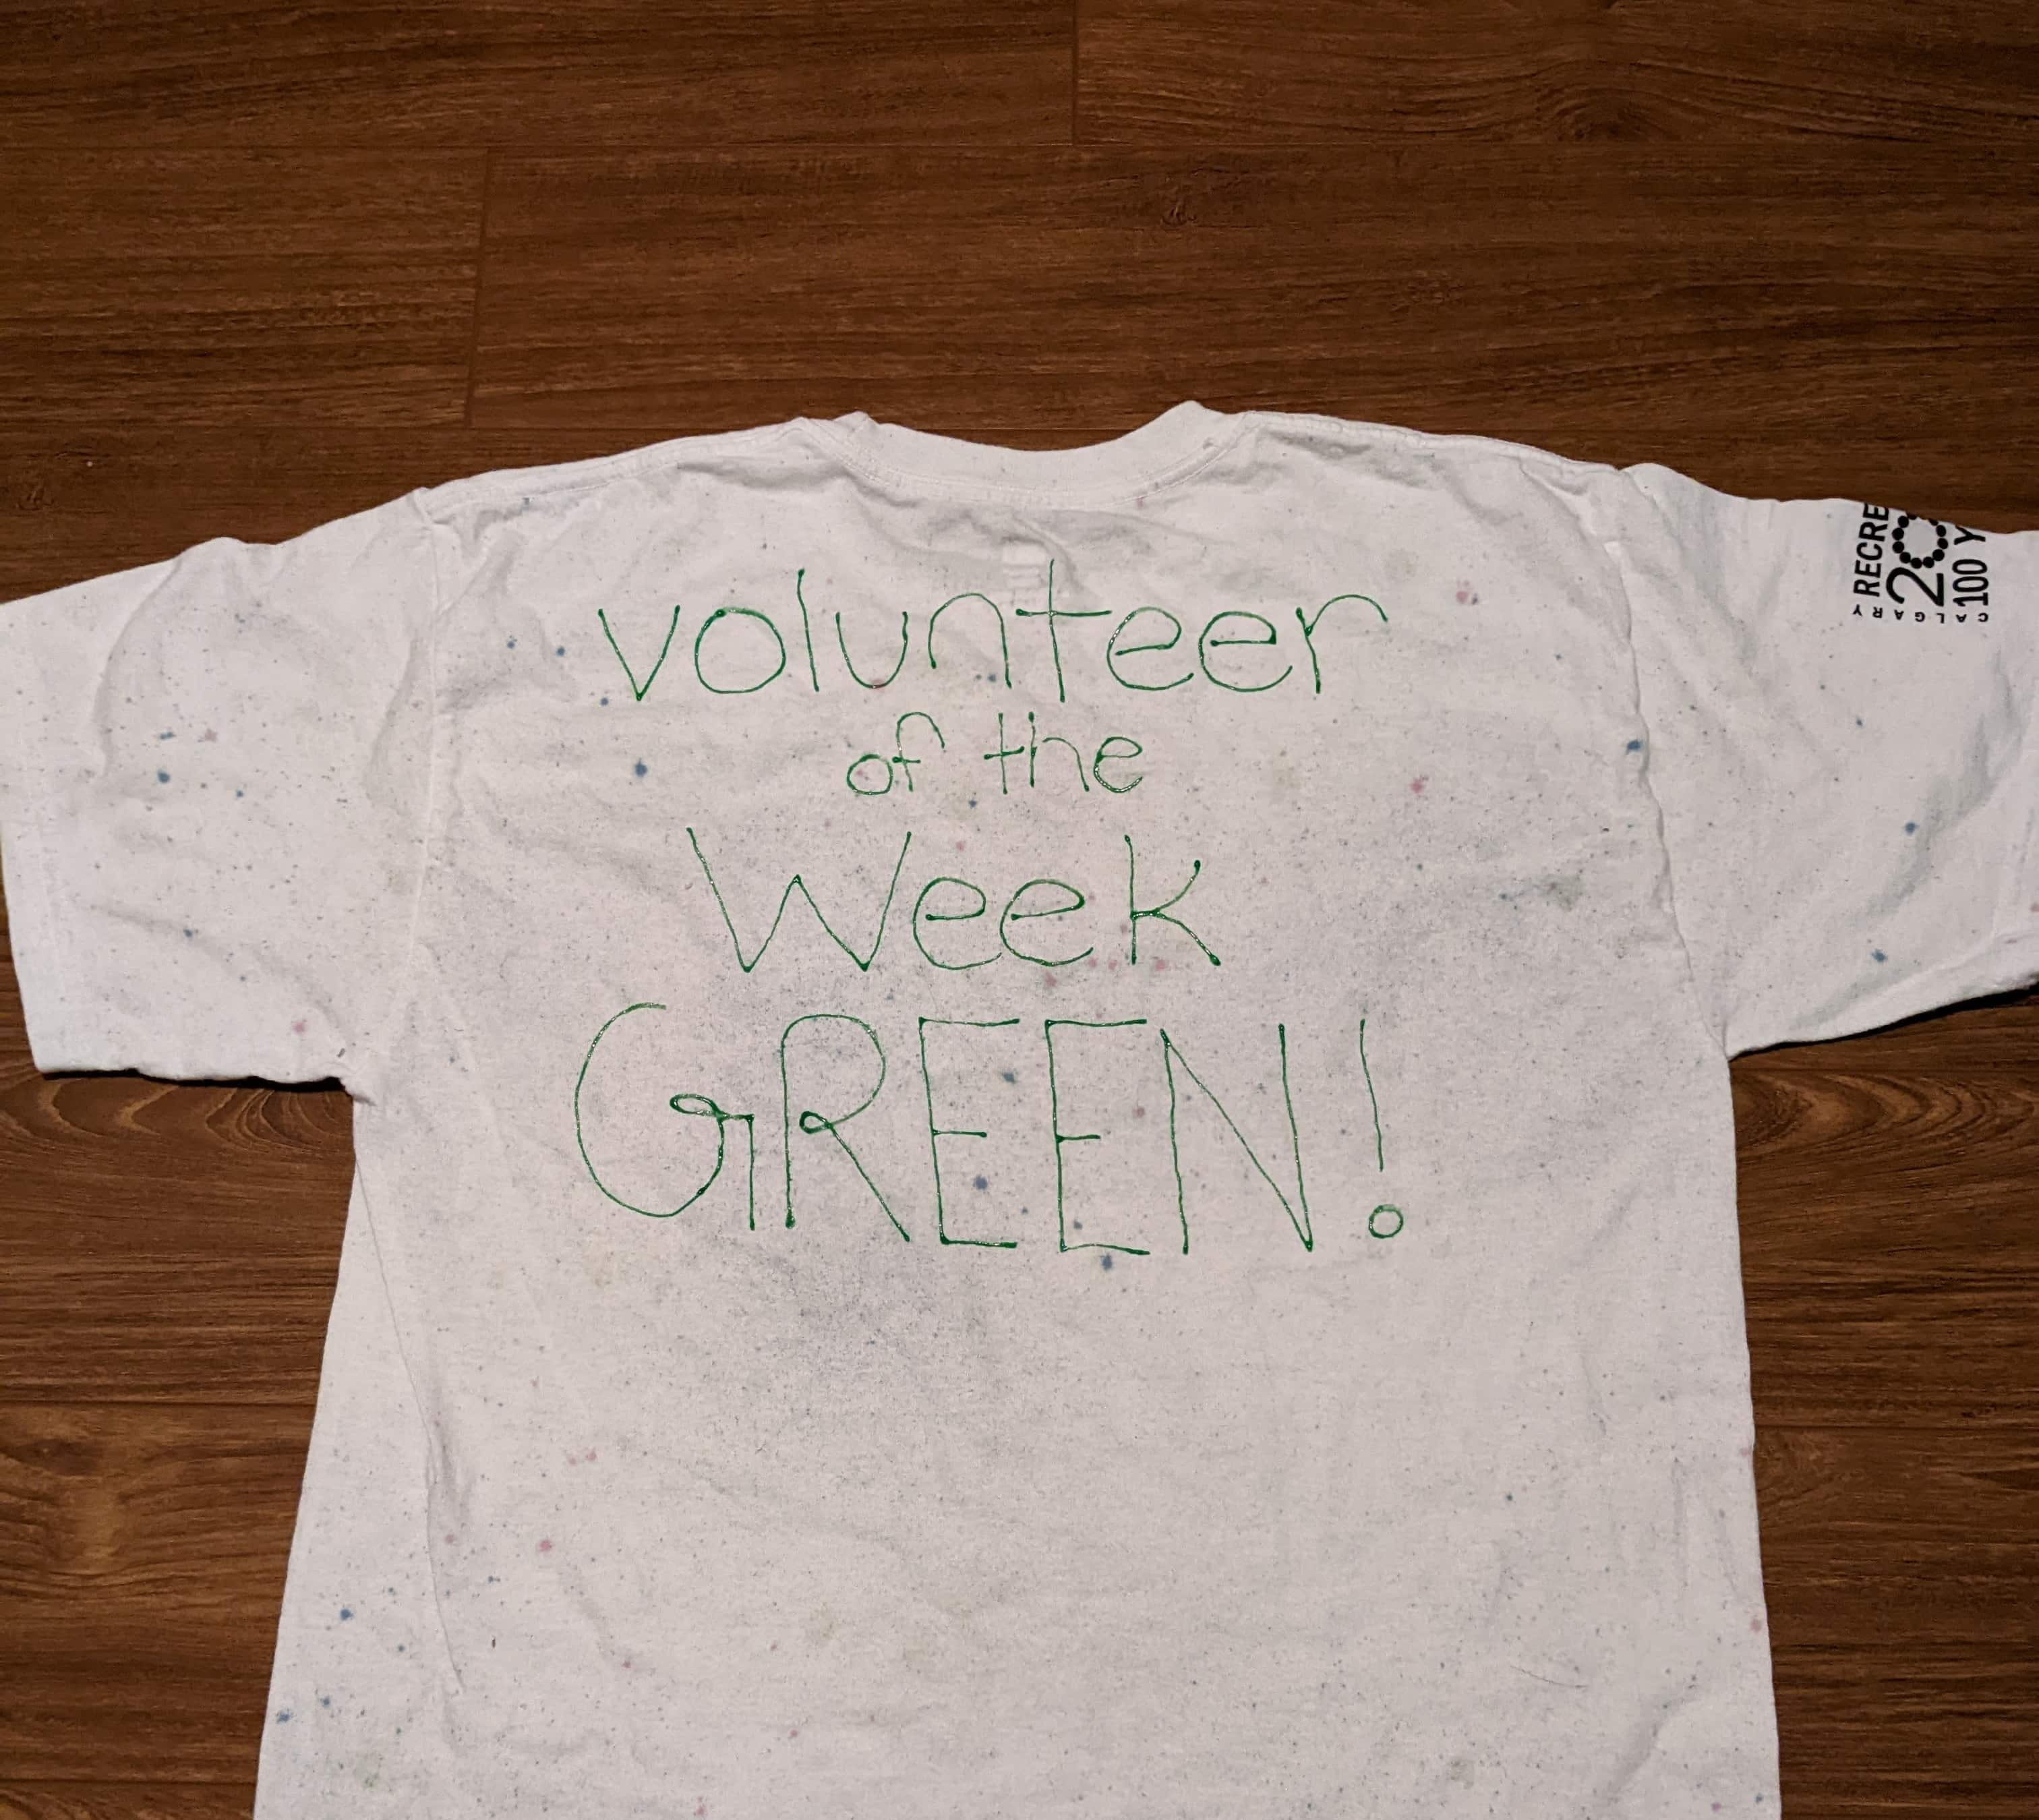 volunteer
of the
Week
GREEN!
RECRE
20
100 Y
CALGARY